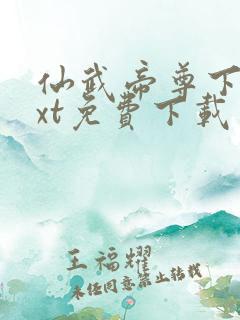 仙武帝尊下
xt免費下載
王福耀
未经同意禁止转载